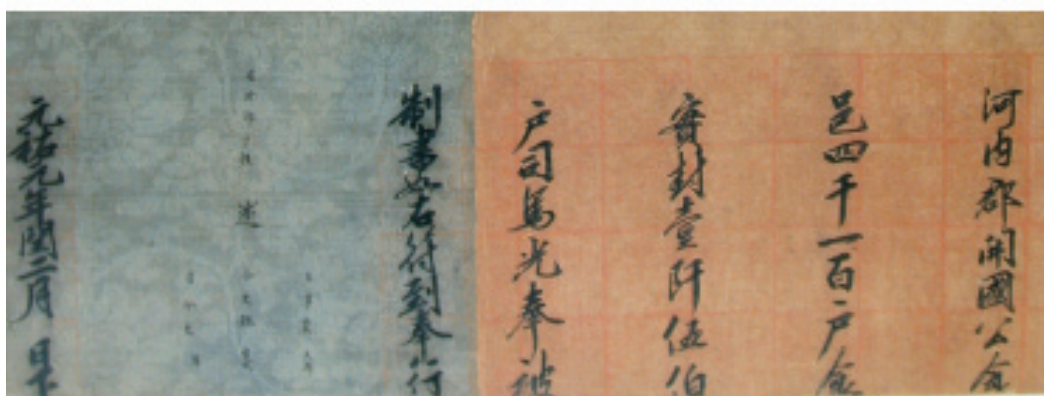 河内郡開國公食
邑四千一百户食
實封壹阡伍伯
户司馬光奉被
制書如右符到奉行
元祐元年閏二月 日下